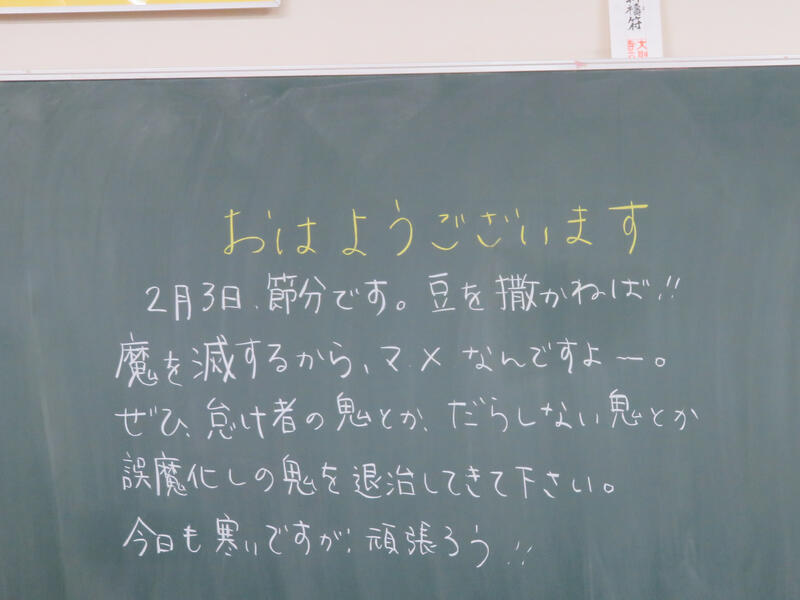 祈禱符
おはようございます
2月3日、節分です。豆を撒かねば!!
魔を滅するから、マメなんですよー。
ぜひ、怠け者の鬼とか、だらしない鬼とか
誤魔化しの鬼を退治してきて下さい。
今日も寒いですが、頑張ろう!!